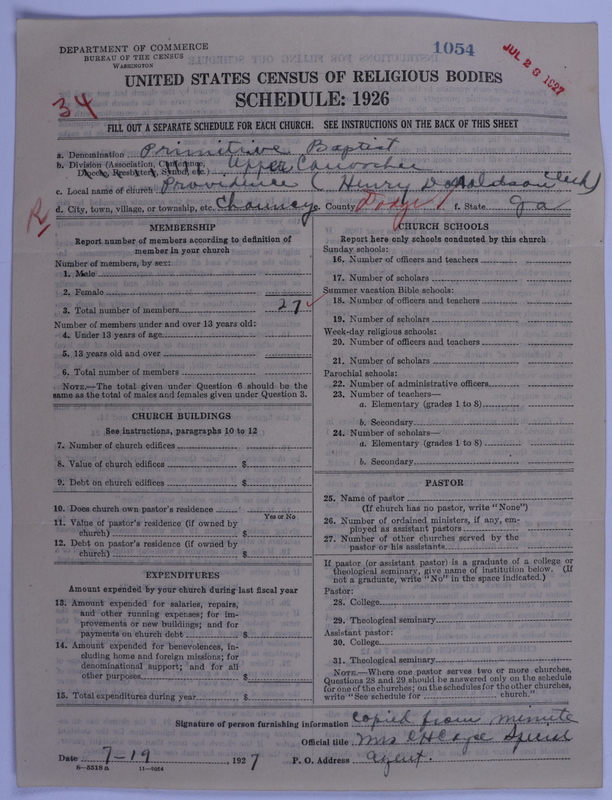 DEPARTMENT OF COMMERCE
BUREAU OF THE CENSUS
WASHINGTON
1054
JUL 26 1927
UNITED STATES CENSUS OF RELIGIOUS BODIES
SCHEDULE: 1926
34
FILL OUT A SEPARATE SCHEDULE FOR EACH CHURCH. SEE INSTRUCTIONS ON THE BACK OF THIS SHEET
a. Denomination Primitive Baptist
b. Division (Association, Conference, Diocese, Presbytery, Synod, etc.) Upper Canoochee
c. Local name of church Providence (Henry Donaldson Clerk)
R
d. City, town, village, or township, etc. Chauncey County Dodge f. State Ga
MEMBERSHIP
Report number of members according to definition of
member in your church
Number of members, by sex:
1. Male
2. Female
3. Total number of members 27
Number of members under and over 13 years old:
4. Under 13 years of age
5. 13 years old and over
6. Total number of members
NOTE.—The total given under Question 6 should be the
same as the total of males and females given under Question 3.
CHURCH BUILDINGS
See instructions, paragraphs 10 to 12
7. Number of church edifices
8. Value of church edifices $
9. Debt on church edifices $
10. Does church own pastor's residence
Yes or No
11. Value of pastor's residence (if owned by
church) $
12. Debt on pastor's residence (if owned by
church) $
EXPENDITURES
Amount expended by your church during last fiscal year
13. Amount expended for salaries, repairs,
and other running expenses; for im-
provements or new buildings; and for
payments on church debt $
14. Amount expended for benevolences, in-
cluding home and foreign missions; for
denominational support; and for all
other purposes $
15. Total expenditures during year $
CHURCH SCHOOLS
Report here only schools conducted by this church
Sunday schools:
16. Number of officers and teachers
17. Number of scholars
Summer vacation Bible schools:
18. Number of officers and teachers
19. Number of scholars
Week-day religious schools:
20. Number of officers and teachers
21. Number of scholars
Parochial schools:
22. Number of administrative officers
23. Number of teachers—
a. Elementary (grades 1 to 8)
b. Secondary
24. Number of scholars—
a. Elementary (grades 1 to 8)
b. Secondary
PASTOR
25. Name of pastor
(If church has no pastor, write "None")
26. Number of ordained ministers, if any, em-
ployed as assistant pastors
27. Number of other churches served by the
pastor or his assistants
If pastor (or assistant pastor) is a graduate of a college or
theological seminary, give name of institution below. (If
not a graduate, write "No" in the space indicated.)
Pastor:
28. College
29. Theological seminary
Assistant pastor:
30. College
31. Theological seminary
NOTE.—Where one pastor serves two or more churches,
Questions 28 and 29 should be answered only on the schedule
for one of the churches; on the schedules for the other churches,
write "See schedule for church."
Signature of person furnishing information Copied from Minute
Official title Mrs C H Cayce Special
Date 7-19, 1927 P. O. Address Agent.
8—5518 a 11—9264